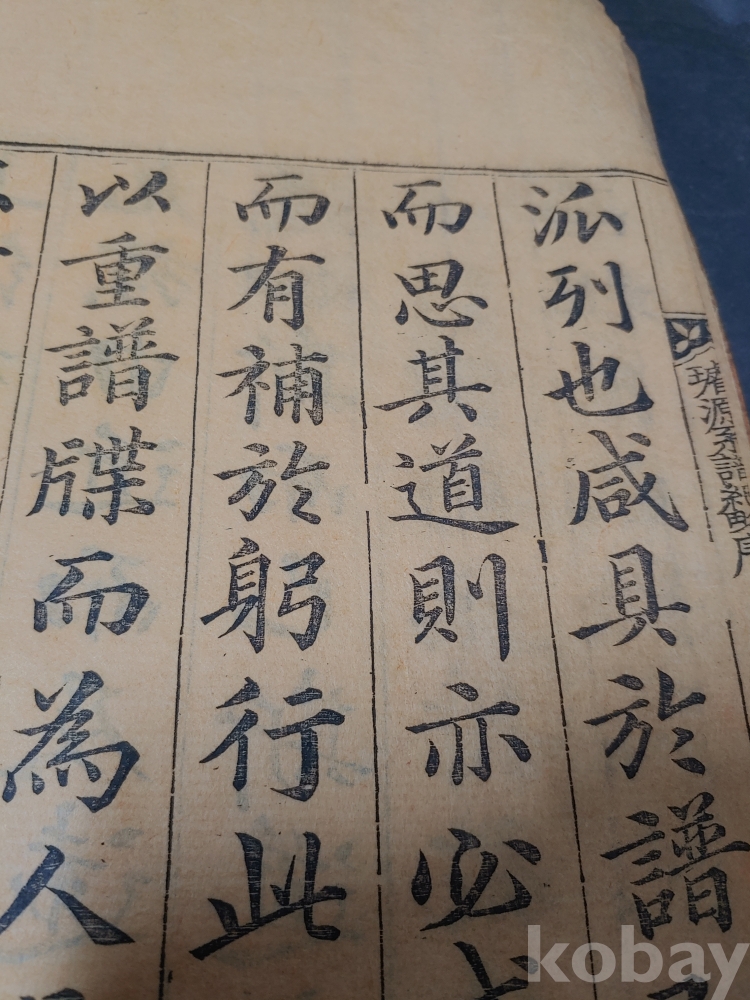 璿源系譜紀畧序
派列也咸具於譜
而思其道則亦必
而有補於躬行此
以重譜牒而為人
kobay